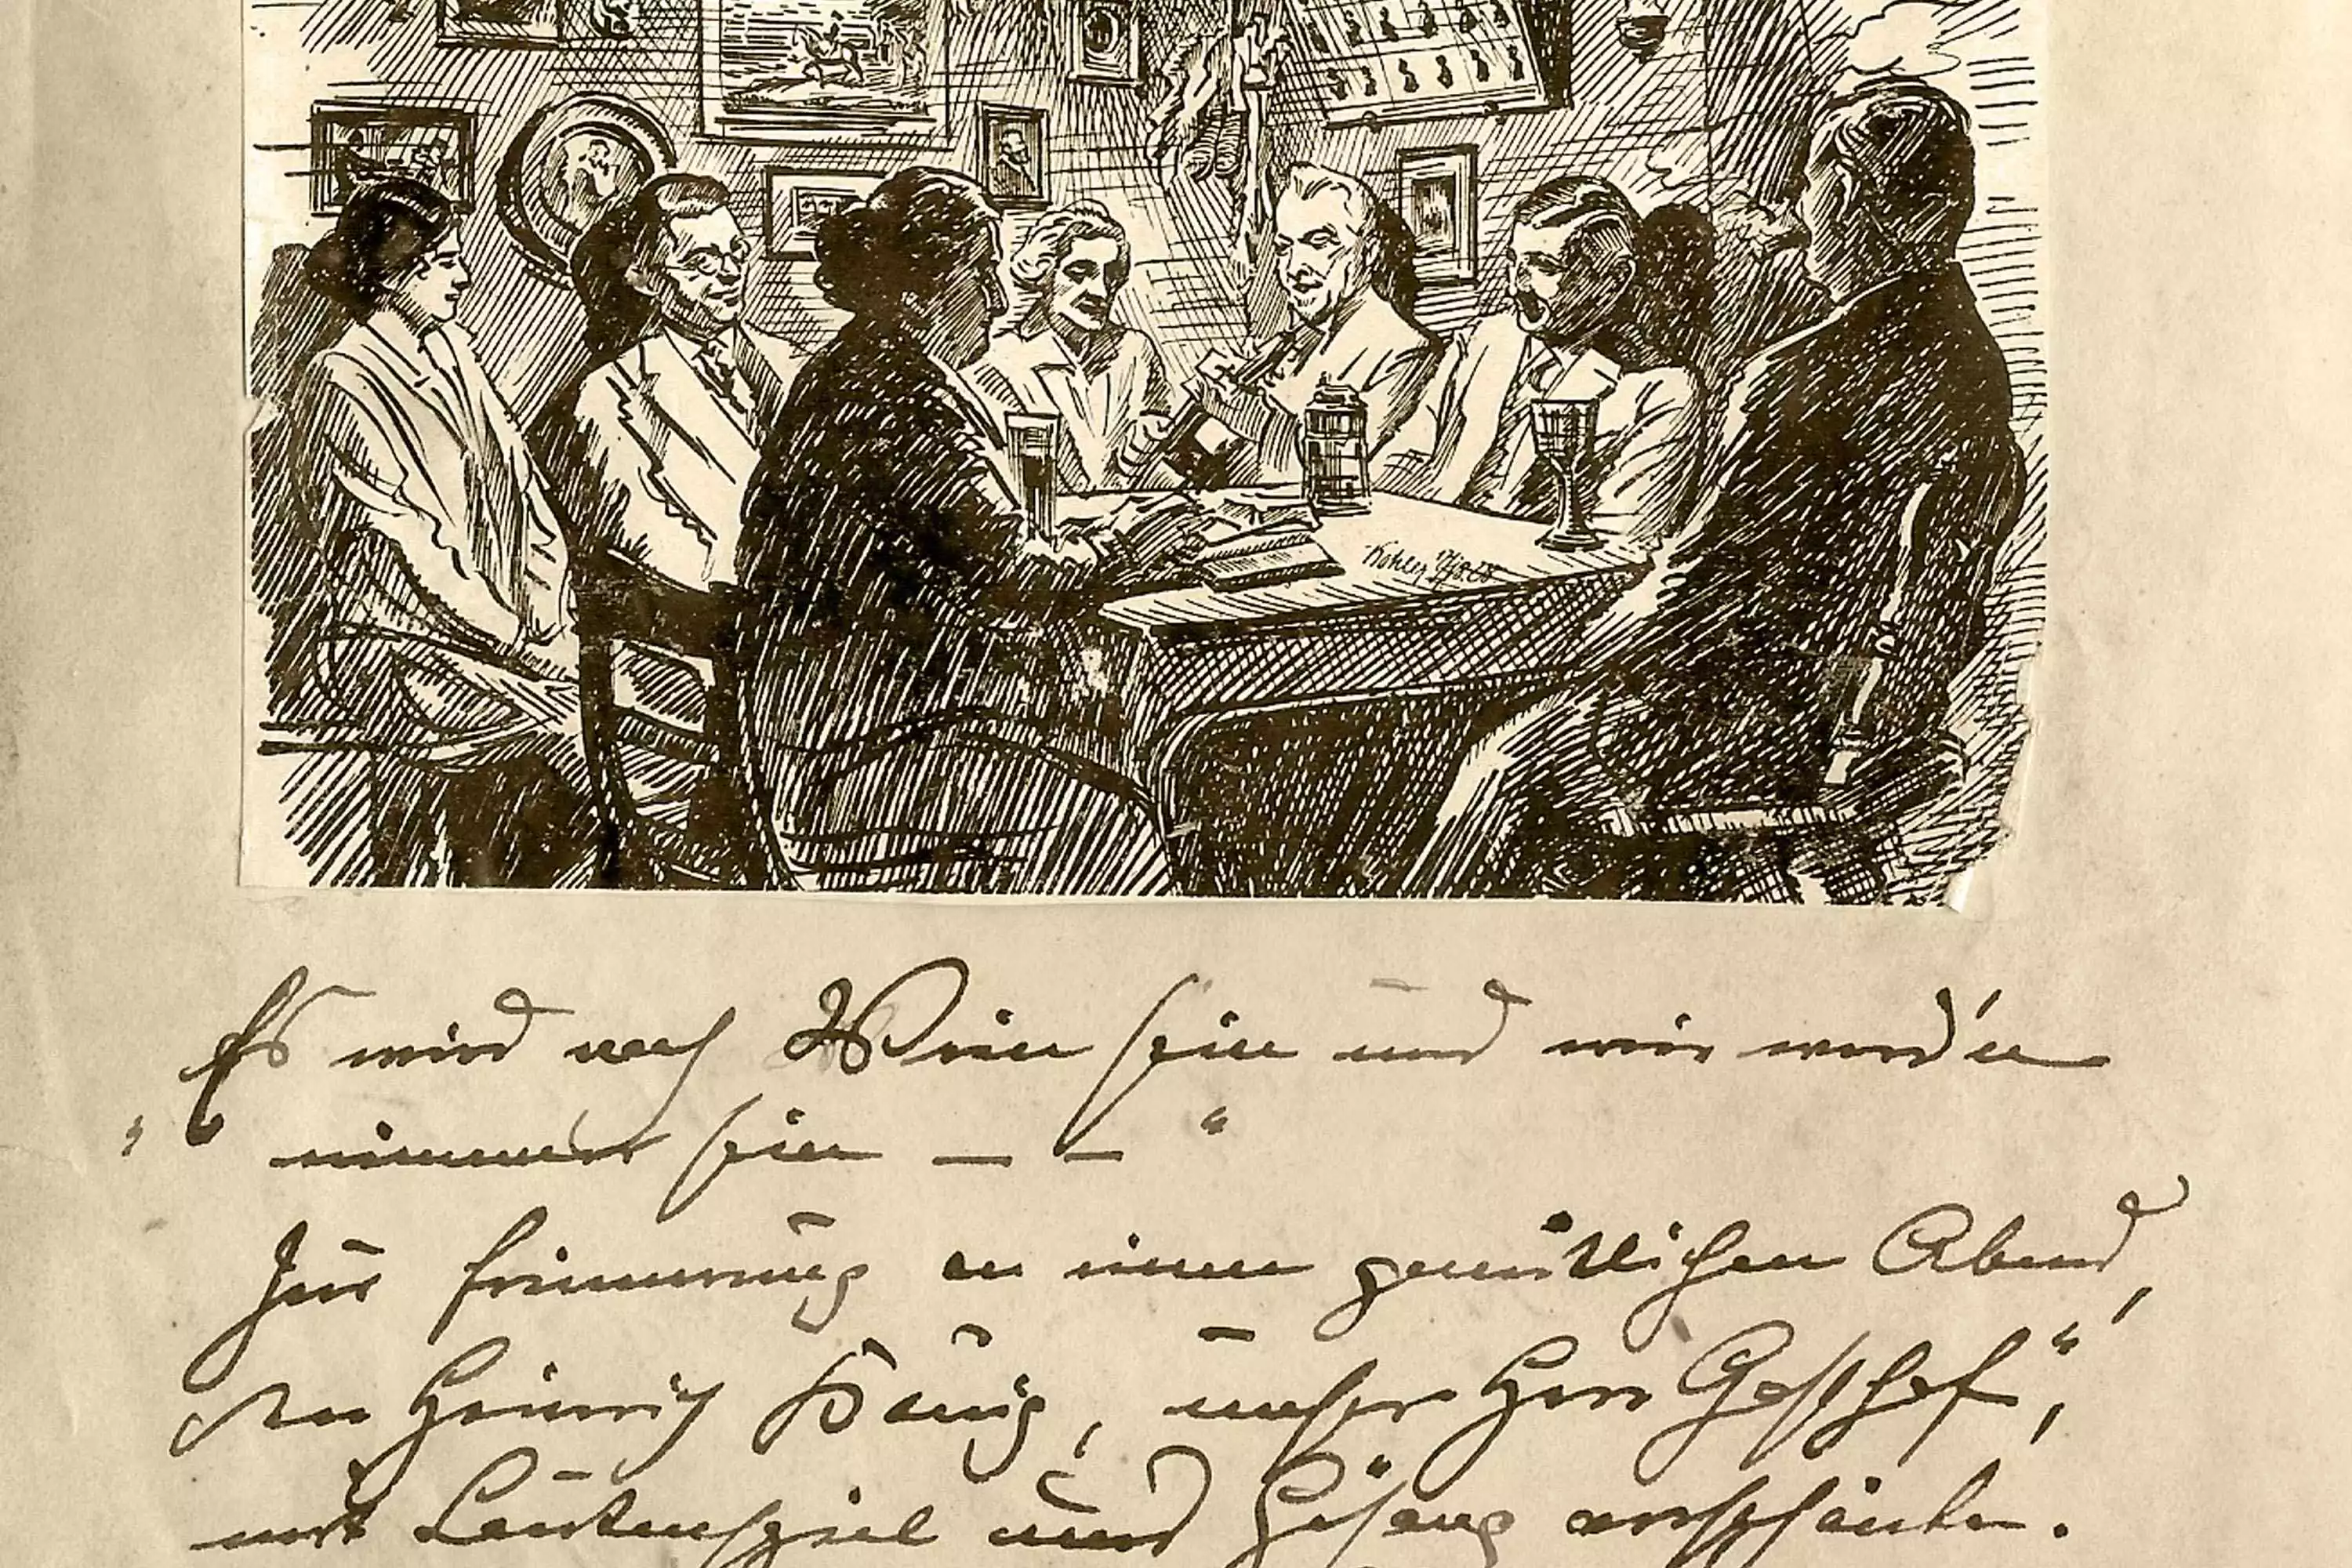 Es wird noch Wein sein und wir werd'n
" nimmer sein — — "
Zur Erinnerung an einen gemütlichen Abend,
den Heinrich König, unser Herr
mit Lautenspiel und Gesang